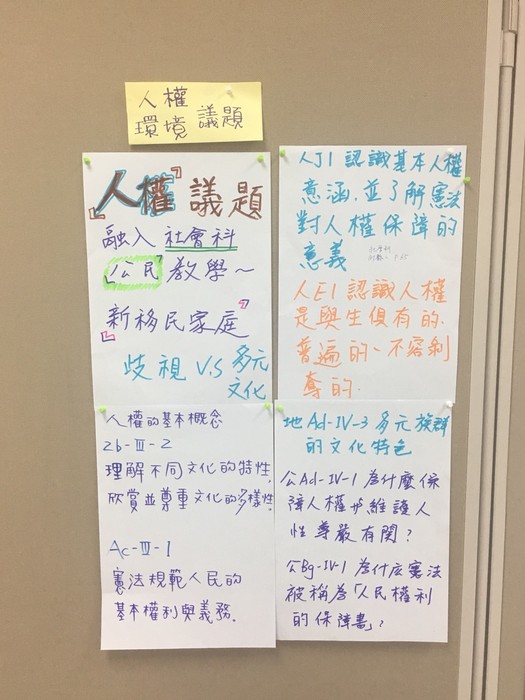 人權
環境 議題
「人權」議題
融入 社會科
公民 教學～
新移民家庭
歧視 V.S 多元
文化
人權的基本概念
2b-Ⅲ-2
理解不同文化的特性,
欣賞並尊重文化的多樣性.
Ac-Ⅲ-1
憲法規範人民的
基本權利與義務.
人J1 認識基本人權
意涵,並了解憲法
對人權保障的
意義
人E1 認識人權
是與生俱有的.
普遍的、不容剝
奪的.
地Ad-IV-3 多元族群
的文化特色
公Ad-IV-1 為什麼保
障人權與維護人
性尊嚴有関？
公Bg-IV-1 為什広憲法
被稱為「人民權利
的保障書」?